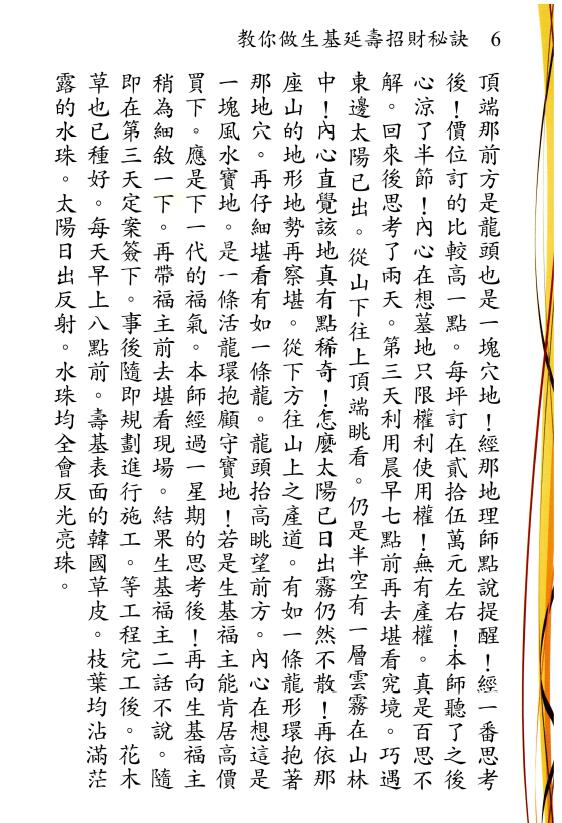 教你做生基延壽招財秘訣 6
頂端那前方是龍頭也是一塊穴地！經那地理師點說提醒！經一番思考
後！價位訂的比較高一點。每坪訂在貳拾伍萬元左右！本師聽了之後
心涼了半節！內心在想墓地只限權利使用權！無有產權。真是百思不
解。回來後思考了兩天。第三天利用晨早七點前再去堪看究境。巧遇
東邊太陽已出。從山下往上頂端眺看。仍是半空有一層雲霧在山林
中！內心直覺該地真有點稀奇！怎麼太陽已日出霧仍然不散！再依那
座山的地形地勢再察堪。從下方往山上之產道。有如一條龍形環抱著
那地穴。再仔細堪看有如一條龍。龍頭抬高眺望前方。內心在想這是
一塊風水寶地。是一條活龍環抱顧守寶地！若是生基福主能肯居高價
買下。應是下一代的福氣。本師經過一星期的思考後！再向生基福主
稍為細敘一下。再帶福主前去堪看現場。結果生基福主二話不說。隨
即在第三天定案簽下。事後隨即規劃進行施工。等工程完工後。花木
草也已種好。每天早上八點前。壽基表面的韓國草皮。枝葉均沾滿茫
露的水珠。太陽日出反射。水珠均全會反光亮珠。